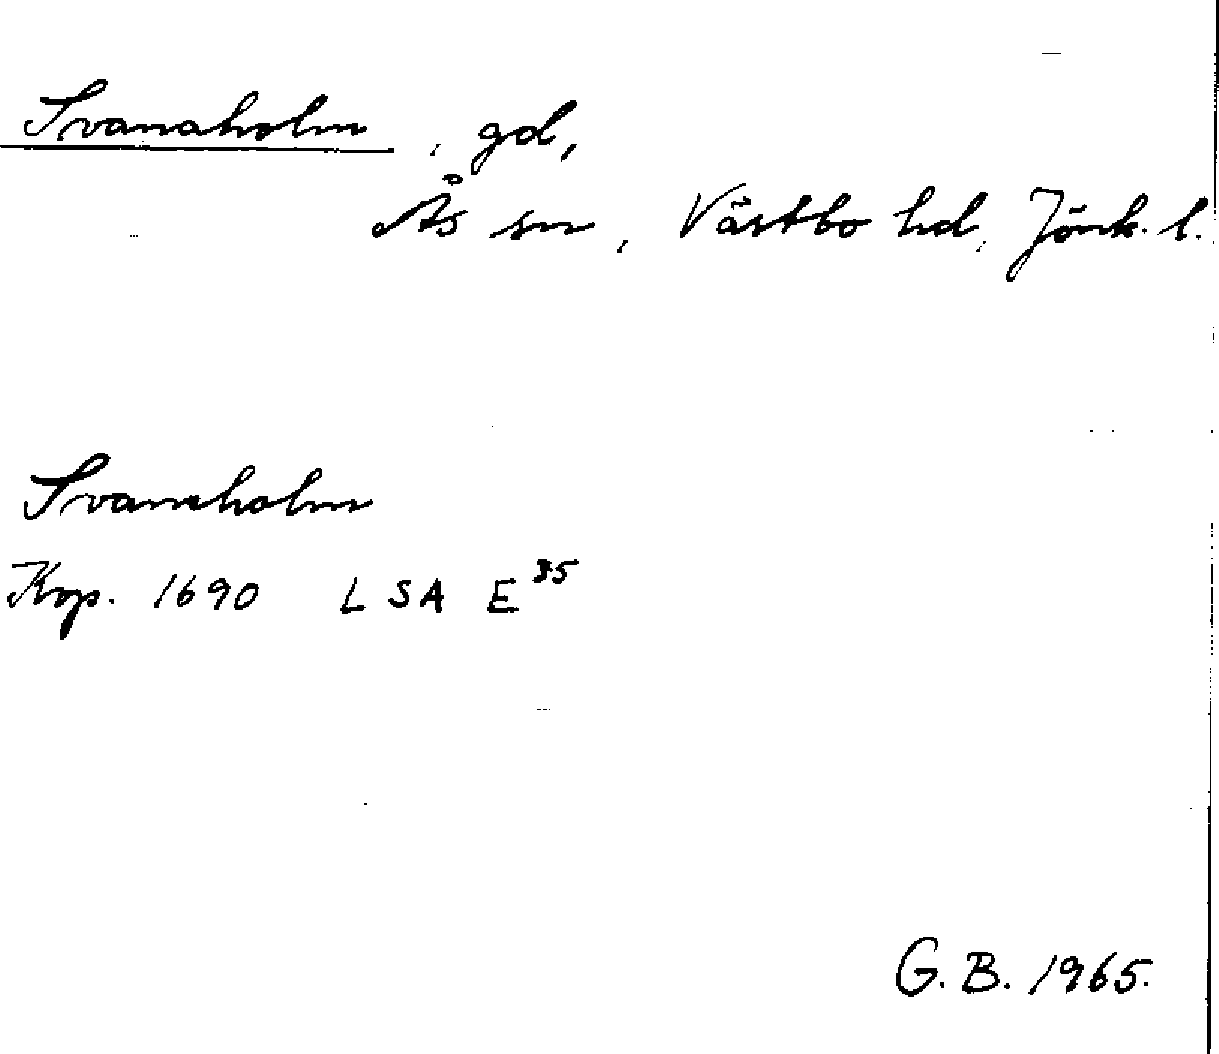 Svanaholm, gd,
Ås sn, Västbo hd, Jönk. l.
Svaneholm
Kop. 1690 LSA E 35
G. B. 1965.